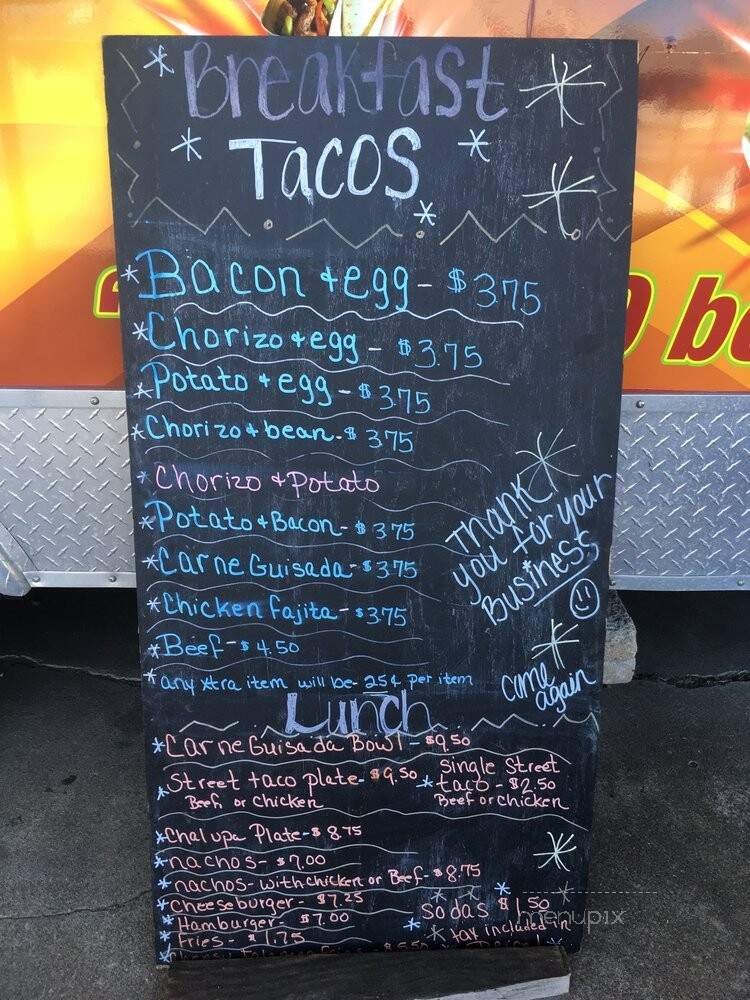 Breakfast
TACOS
* Bacon + egg - $3.75
* Chorizo + egg - $3.75
* Potato + egg - $3.75
* Chorizo + bean - $3.75
* Chorizo + Potato
* Potato + Bacon - $3.75
* Carne Guisada - $3.75
* Chicken fajita - $3.75
* Beef - $4.50
* any xtra item will be - 25¢ per item
Thank
you for your
Business
come
again
Lunch
* Carne Guisada Bowl - $9.50
* Street taco plate - $9.50
Beef or chicken
* Single Street
taco - $2.50
Beef or chicken
* Chalupa Plate - $8.75
* nachos - $7.00
* nachos - with chicken or Beef - $8.75
* cheeseburger - $7.25
* Hamburger - $7.00
* Fries - $1.75
Sodas $1.50
* tax included in
menupix
be